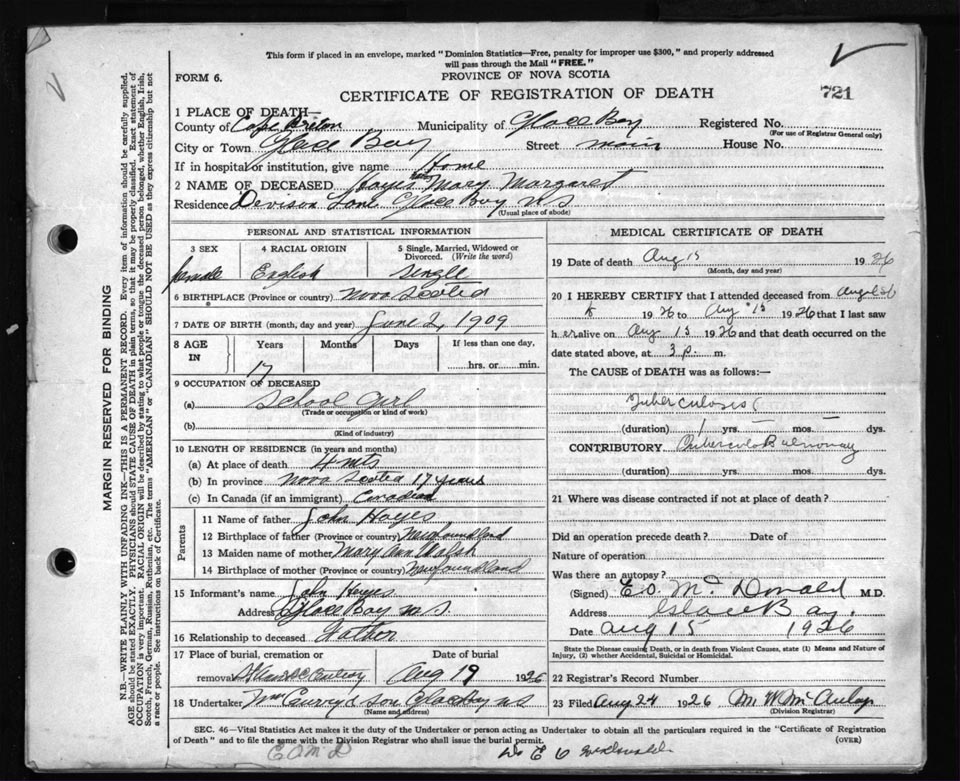 This form if placed in an envelope, marked "Dominion Statistics—Free, penalty for improper use $300," and properly addressed
will pass through the Mail "FREE."
FORM 6.
PROVINCE OF NOVA SCOTIA
CERTIFICATE OF REGISTRATION OF DEATH
721
1 PLACE OF DEATH—
County of Cape Briton Municipality of Glace Bay Registered No.
(For use of Registrar General only)
City or Town Glace Bay Street main House No.
If in hospital or institution, give name Home
2 NAME OF DECEASED Hayes Mary Margaret
Residence Devison Lane Glace Bay N S
(Usual place of abode)
PERSONAL AND STATISTICAL INFORMATION
3 SEX 4 RACIAL ORIGIN 5 Single, Married, Widowed or Divorced. (Write the word)
female English Single
6 BIRTHPLACE (Province or country) Nova Scotia
7 DATE OF BIRTH (month, day and year) June 2, 1909
8 AGE IN Years Months Days If less than one day,
17 hrs. or min.
9 OCCUPATION OF DECEASED
(a) School Girl
(Trade or occupation or kind of work)
(b)
(Kind of industry)
10 LENGTH OF RESIDENCE (in years and months)
(a) At place of death 4 mts
(b) In province Nova Scotia 17 years
(c) In Canada (if an immigrant) Canadian
Parents
11 Name of father John Hayes
12 Birthplace of father (Province or country) Newfoundland
13 Maiden name of mother Mary Ann Walsh
14 Birthplace of mother (Province or country) Newfoundland
15 Informant's name John Hayes
Address Glace Bay N.S.
16 Relationship to deceased Father
17 Place of burial, cremation or removal Date of burial
Aug 19 1926
18 Undertaker & son Glace Bay N S
(Name and address)
MEDICAL CERTIFICATE OF DEATH
19 Date of death Aug 15 1926
(Month, day and year)
20 I HEREBY CERTIFY that I attended deceased from
1926 to Aug 15 1926 that I last saw
h er alive on Aug 15 1926 and that death occurred on
date stated above, at 3 p. m.
The CAUSE of DEATH was as follows:—
Tuberculosis
(duration) 1 yrs. — mos. — dys.
CONTRIBUTORY
(duration) yrs. mos. dys.
21 Where was disease contracted if not at place of death?
Did an operation precede death? Date of
Nature of operation
Was there an autopsy?
(Signed) E.O. McDonald M.D.
Address Glace Bay.
Date Aug 15 1926
State the Disease causing Death, or in death from Violent Causes, state (1) Means and Nature of Injury, (2) whether Accidental, Suicidal or Homicidal.
22 Registrar's Record Number
23 Filed Aug 24 1926 M W McAulay
(Division Registrar)
SEC. 46—Vital Statistics Act makes it the duty of the Undertaker or person acting as Undertaker to obtain all the particulars required in the "Certificate of Registration
of Death" and to file the same with the Division Registrar who shall issue the burial permit.
(OVER)
E O M D
Dr E O McDonald
MARGIN RESERVED FOR BINDING
N.B.—WRITE PLAINLY WITH UNFADING INK—THIS IS A PERMANENT RECORD. Every item of information should be carefully supplied.
AGE should be stated EXACTLY. PHYSICIANS should STATE CAUSE OF DEATH in plain terms, so that it may be properly classified. Exact statement of
OCCUPATION is very important. RACIAL ORIGIN will be described by stating to what people or tongue the deceased person belonged, whether English, Irish,
Scotch, French, German, Russian, Ruthenian, etc. The terms "AMERICAN" or "CANADIAN" SHOULD NOT BE USED as they express citizenship but not
a race or people. See instructions on back of Certificate.